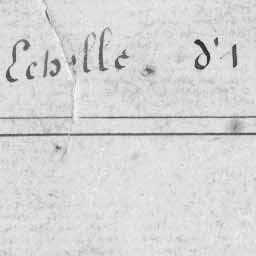 Echelle. d'1